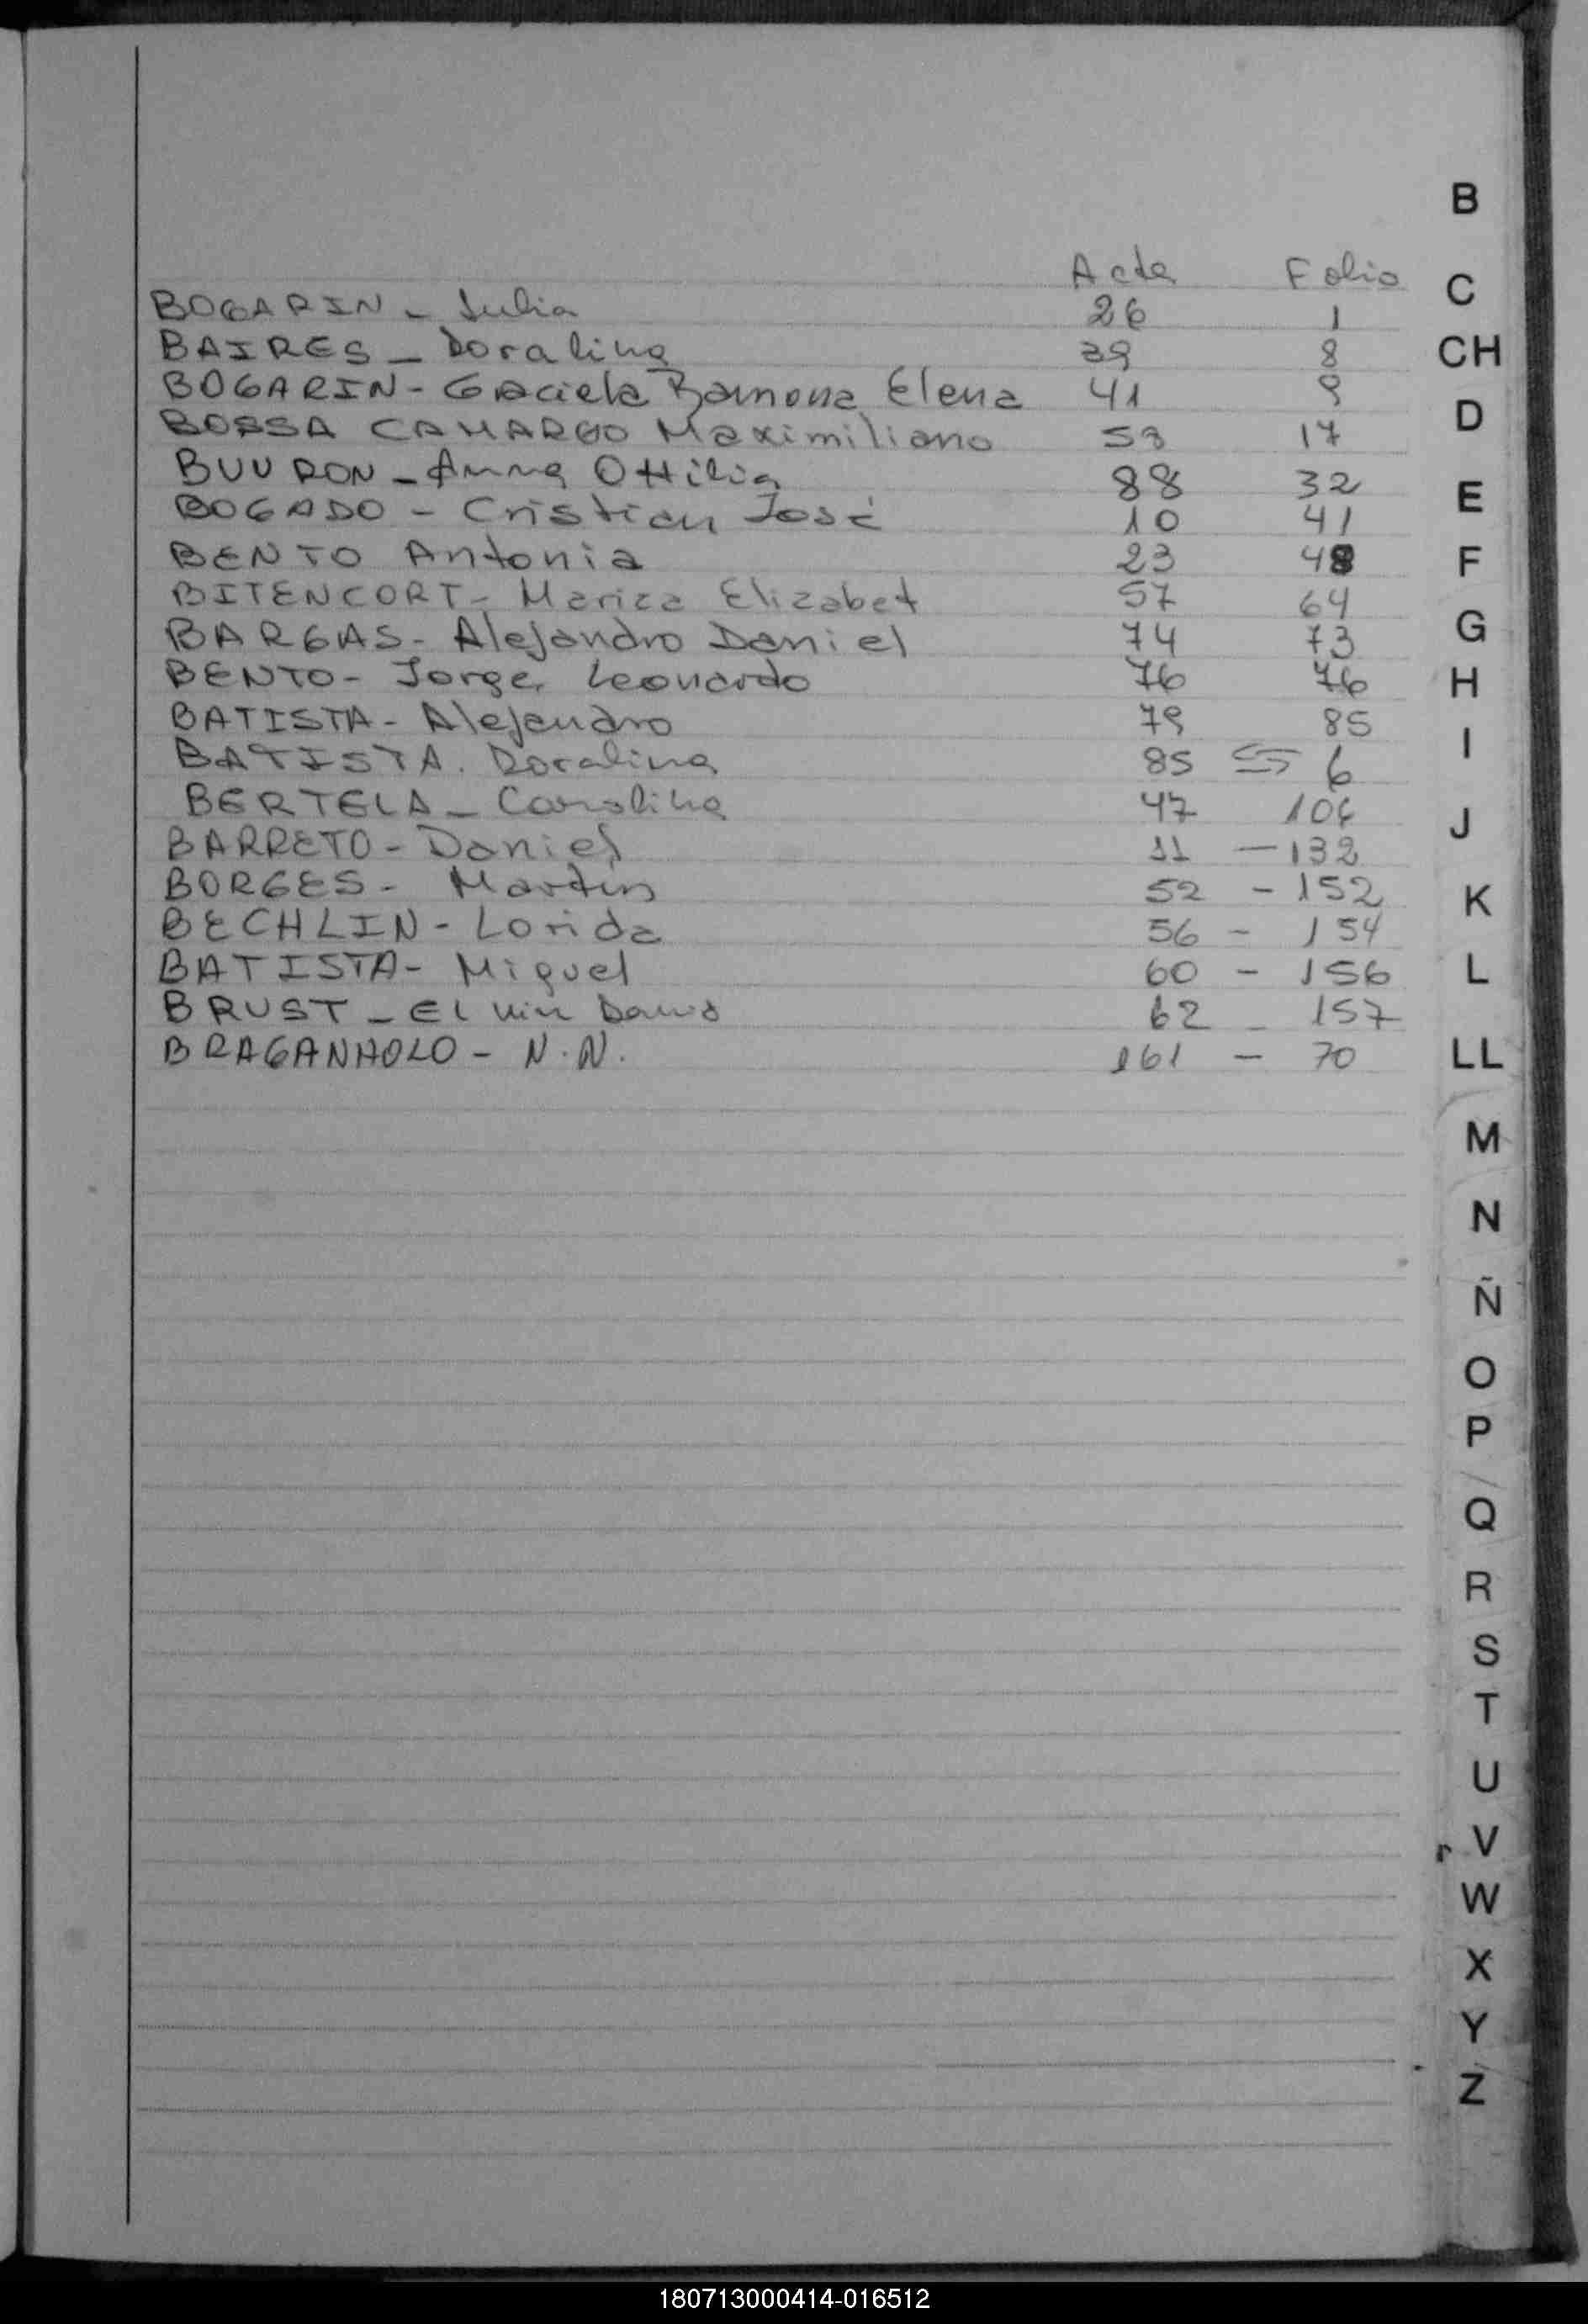 B
Acta Folio
C
BOGARIN - Julia 26 1
BAIRES - Doralina 39 8
CH
BOGARIN - Graciela Ramona Elena 41 9
D
BOSSA CAMARGO Maximiliano 53 17
BUURON - Anna Ottilia 88 32
E
BOGADO - Cristian José 10 41
BENTO Antonia 23 48
F
BITENCORT - Mariza Elizabet 57 64
G
BARGAS - Alejandro Daniel 74 73
BENTO - Jorge Leonardo 76 76
H
BATISTA - Alejandro 79 85
I
BATISTA. Doralina 85 6
BERTELA - Carolina 47 106
J
BARRETO - Daniel 11 - 132
BORGES - Martin 52 - 152
K
BECHLIN - Lorida 56 - 154
BATISTA - Miguel 60 - 156
L
BRUST - Elvin David 62 - 157
BRAGANHOLO - N.N. 161 - 70
LL
M
N
Ñ
O
P
Q
R
S
T
U
V
W
X
Y
Z
180713000414-016512